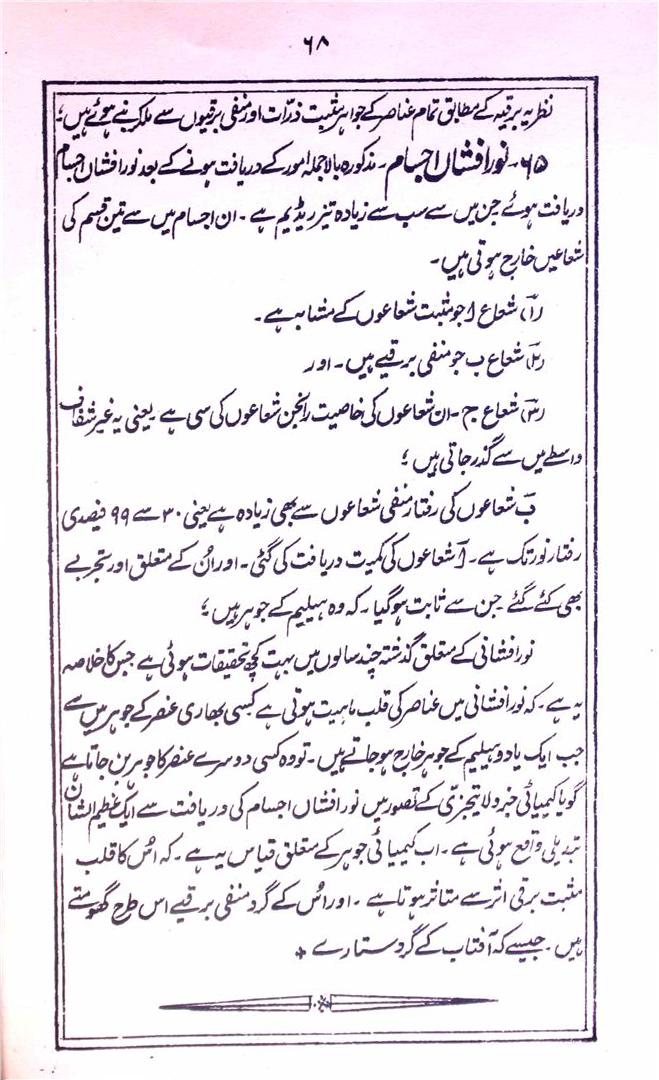 ۶۸
نظریہ برقیہ کے مطابق تمام عناصر کے جواہر مثبت ذرّات اور منفی برقیوں سے ملکر بنے ہوئے ہیں؛
۶۵۔ نور افشاں اجسام ۔ مذکورہ بالا جملہ امور کے دریافت ہونے کے بعد نور افشاں اجسام
دریافت ہوئے جن میں سے سب سے زیادہ تیز ریڈیم ہے ۔ ان اجسام میں سے تین قسم کی
شعاعیں خارج ہوتی ہیں۔
(۱) شعاع ا جو مثبت شعاعوں کے مشابہ ہے ۔
(۲) شعاع ب جو منفی برقیے ہیں ۔ اور
(۳) شعاع ج ۔ ان شعاعوں کی خاصیت رانجن شعاعوں کی سی ہے یعنی یہ غیر شفاف
واسطے میں سے گذر جاتی ہیں ؛
ب شعاعوں کی رفتار منفی شعاعوں سے بھی زیادہ ہے یعنی ۳۰ سے ۹۹ فیصدی
رفتار نور تک ہے ۔ ا شعاعوں کی کمیت دریافت کی گئی ۔ اور اُن کے متعلق اور تجربے
بھی کئے گئے جن سے ثابت ہوگیا ۔ کہ وہ ہیلیم کے جوہر ہیں ؛
نور افشانی کے متعلق گذشتہ چند سالوں میں بہت کچھ تحقیقات ہوئی ہے جس کا خلاصہ
یہ ہے ۔ کہ نور افشانی میں عناصر کی قلب ماہیت ہوتی ہے کسی بھاری عنصر کے جوہر میں سے
جب ایک یا دو ہیلیم کے جوہر خارج ہوجاتے ہیں ۔ تو وہ کسی دوسرے عنصر کا جوہر بن جاتا ہے
گویا کیمیائی جزو لا یتجزیٰ کے تصور میں نور افشاں اجسام کی دریافت سے ایک عظیم الشان
تبدیلی واقع ہوئی ہے ۔ اب کیمیائی جوہر کے متعلق قیاس یہ ہے ۔ کہ اُس کا قلب
مثبت برقی اثر سے متاثر ہوتا ہے ۔ اور اُس کے گرد منفی برقیے اس طرح گھومتے
ہیں ۔ جیسے کہ آفتاب کے گرد ستارے +